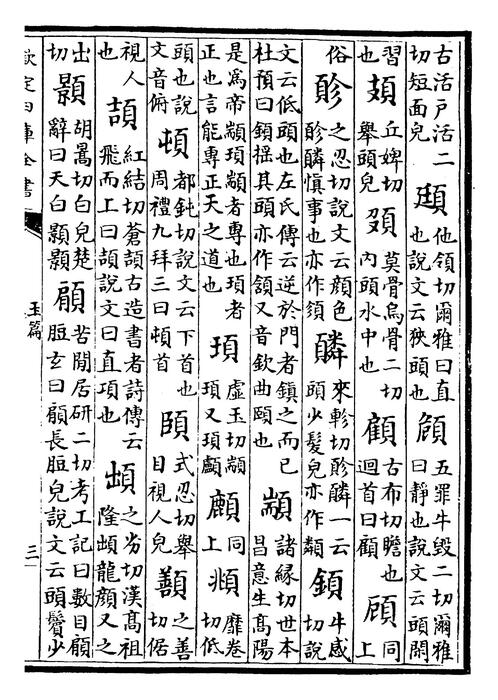 古活户活二切短面皃 頲 他領切爾雅曰直也說文云狹頭也 頠 五罪牛毀二切爾雅曰靜也說文云頭閑
習也 頍 丘婢切舉頭皃 𩑔 莫骨烏骨二切内頭水中也 顧 古布切瞻也迴首曰顧 頋 同上
俗 之忍切說文云顔色慎事也亦作 來軫切一云頭少髮皃亦作 顉 牛感切說
文云低頭也左氏傳云逆於門者鎮之而已杜預曰顉揺其頭亦作頷又音欽曲頤也 顓 諸縁切世本昌意生髙陽
是為帝顓頊顓者專也頊者正也言能專正天之道也 頊 虛玉切顓頊又頊顱 同上 頫 靡卷切低
頭也說文音俯 頓 都鈍切說文云下首也周禮九拜三曰頓首 式忍切舉目視人皃 之善切倨
視人也 頡 紅結切蒼頡古造書者詩傳云飛而上曰頡說文曰直項也 䪼 之劣切漢髙祖隆䪼龍顔又之
出切 顥 胡暠切白皃楚辭曰天白顥顥 顅 苦閒居研二切考工記曰數目顅脰玄曰顅長脰皃說文云頭鬢少
欽定四庫全書
玉篇
三